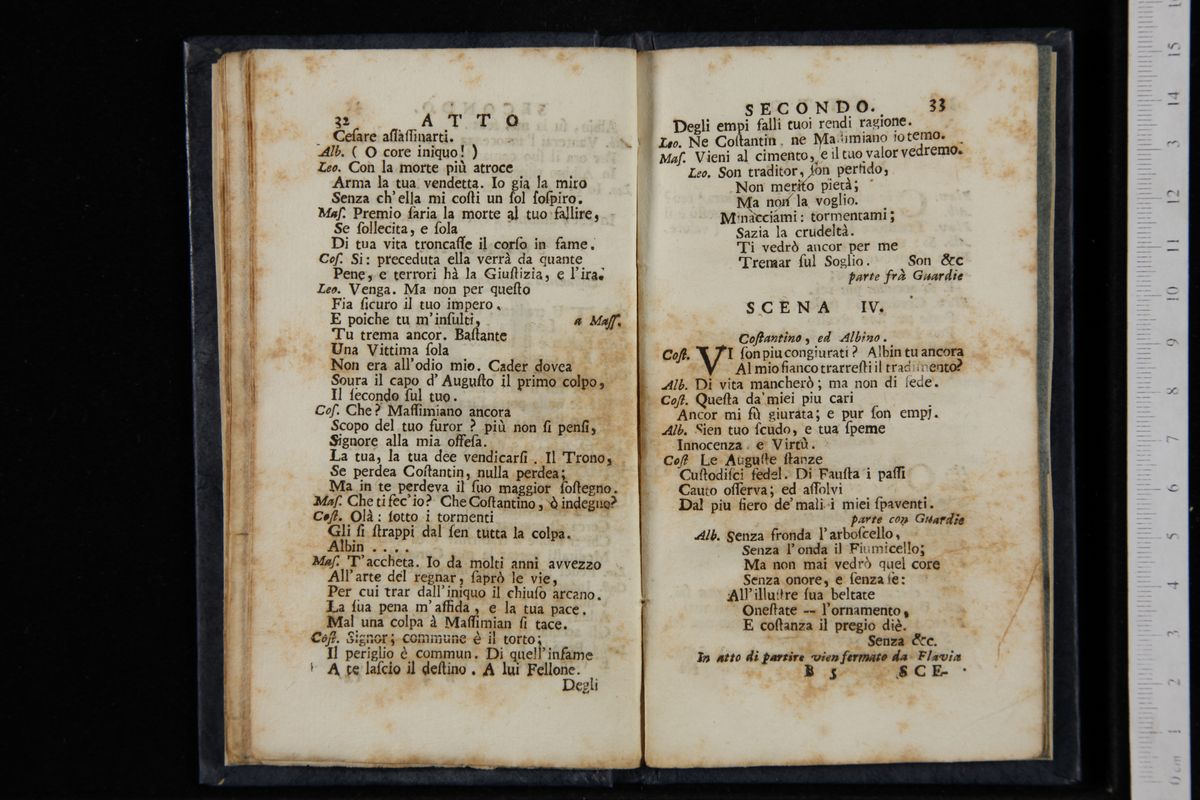 32 ATTO
Ceſare aſſaſſinarti.
Alb. ( O core iniquo! )
Leo. Con la morte più atroce
Arma la tua vendetta. Io già la miro
Senza ch'ella mi coſti un ſol ſoſpiro.
Maſ. Premio ſaria la morte al tuo fallire,
Se ſollecita, e ſola
Di tua vita troncaſſe il corſo in fame.
Coſ. Si: preceduta ella verrà da quante
Pene, e terrori hà la Giuſtizia, e l'ira.
Leo. Venga. Ma non per queſto
Fia ſicuro il tuo impero.
E poiche tu m'inſulti, a Maſſ.
Tu trema ancor. Baſtante
Una Vittima ſola
Non era all'odio mio. Cader dovea
Soura il capo d'Auguſto il primo colpo,
Il ſecondo ſul tuo.
Coſ. Che? Maſſimiano ancora
Scopo del tuo furor ? più non ſi penſi,
Signore alla mia offeſa.
La tua, la tua dee vendicarſi . Il Trono,
Se perdea Coſtantin, nulla perdea;
Ma in te perdeva il ſuo maggior ſoſtegno.
Maſ. Che ti fec'io? Che Coſtantino, ò indegno?
Coſt. Olà: ſotto i tormenti
Gli ſi ſtrappi dal ſen tutta la colpa.
Albin . . . .
Maſ. T'accheta. Io da molti anni avvezzo
All'arte del regnar, ſaprò le vie,
Per cui trar dall'iniquo il chiuſo arcano.
La ſua pena m'affida, e la tua pace.
Mal una colpa à Maſſimian ſi tace.
Coſt. Signor; commune è il torto;
Il periglio è commun. Di quell'infame
A te laſcio il deſtino. A lui Fellone.
Degli
SECONDO. 33
Degli empi falli tuoi rendi ragione.
Leo. Ne Coſtantin, ne Maſſimiano io temo.
Maſ. Vieni al cimento, e il tuo valor vedremo.
Leo. Son traditor, ſon perfido,
Non merito pietà;
Ma non la voglio.
Minacciami: tormentami;
Sazia la crudeltà.
Ti vedrò ancor per me
Tremar ſul Soglio. Son &c
parte frà Guardie
SCENA IV.
Coſtantino, ed Albino.
Coſt. VI ſon piu congiurati? Albin tu ancora
Al mio fianco trarreſti il tradimento?
Alb. Di vita mancherò; ma non di fede.
Coſt. Queſta da'miei piu cari
Ancor mi fù giurata; e pur ſon empj.
Alb. Sien tuo ſcudo, e tua ſpeme
Innocenza, e Virtù.
Coſt Le Auguſte ſtanze
Cuſtodiſci fedel. Di Fauſta i paſſi
Cauto oſſerva; ed aſſolvi
Dal piu fiero de'mali i miei ſpaventi.
parte con Guardie
Alb. Senza fronda l'arboſcello,
Senza l'onda il Fiumicello;
Ma non mai vedrò quel core
Senza onore, e ſenza fe:
All'illuſtre ſua beltate
Oneſtate -- l'ornamento,
E coſtanza il pregio diè.
Senza &c.
In atto di partire vien fermato da Flavia
B 5 SCE-